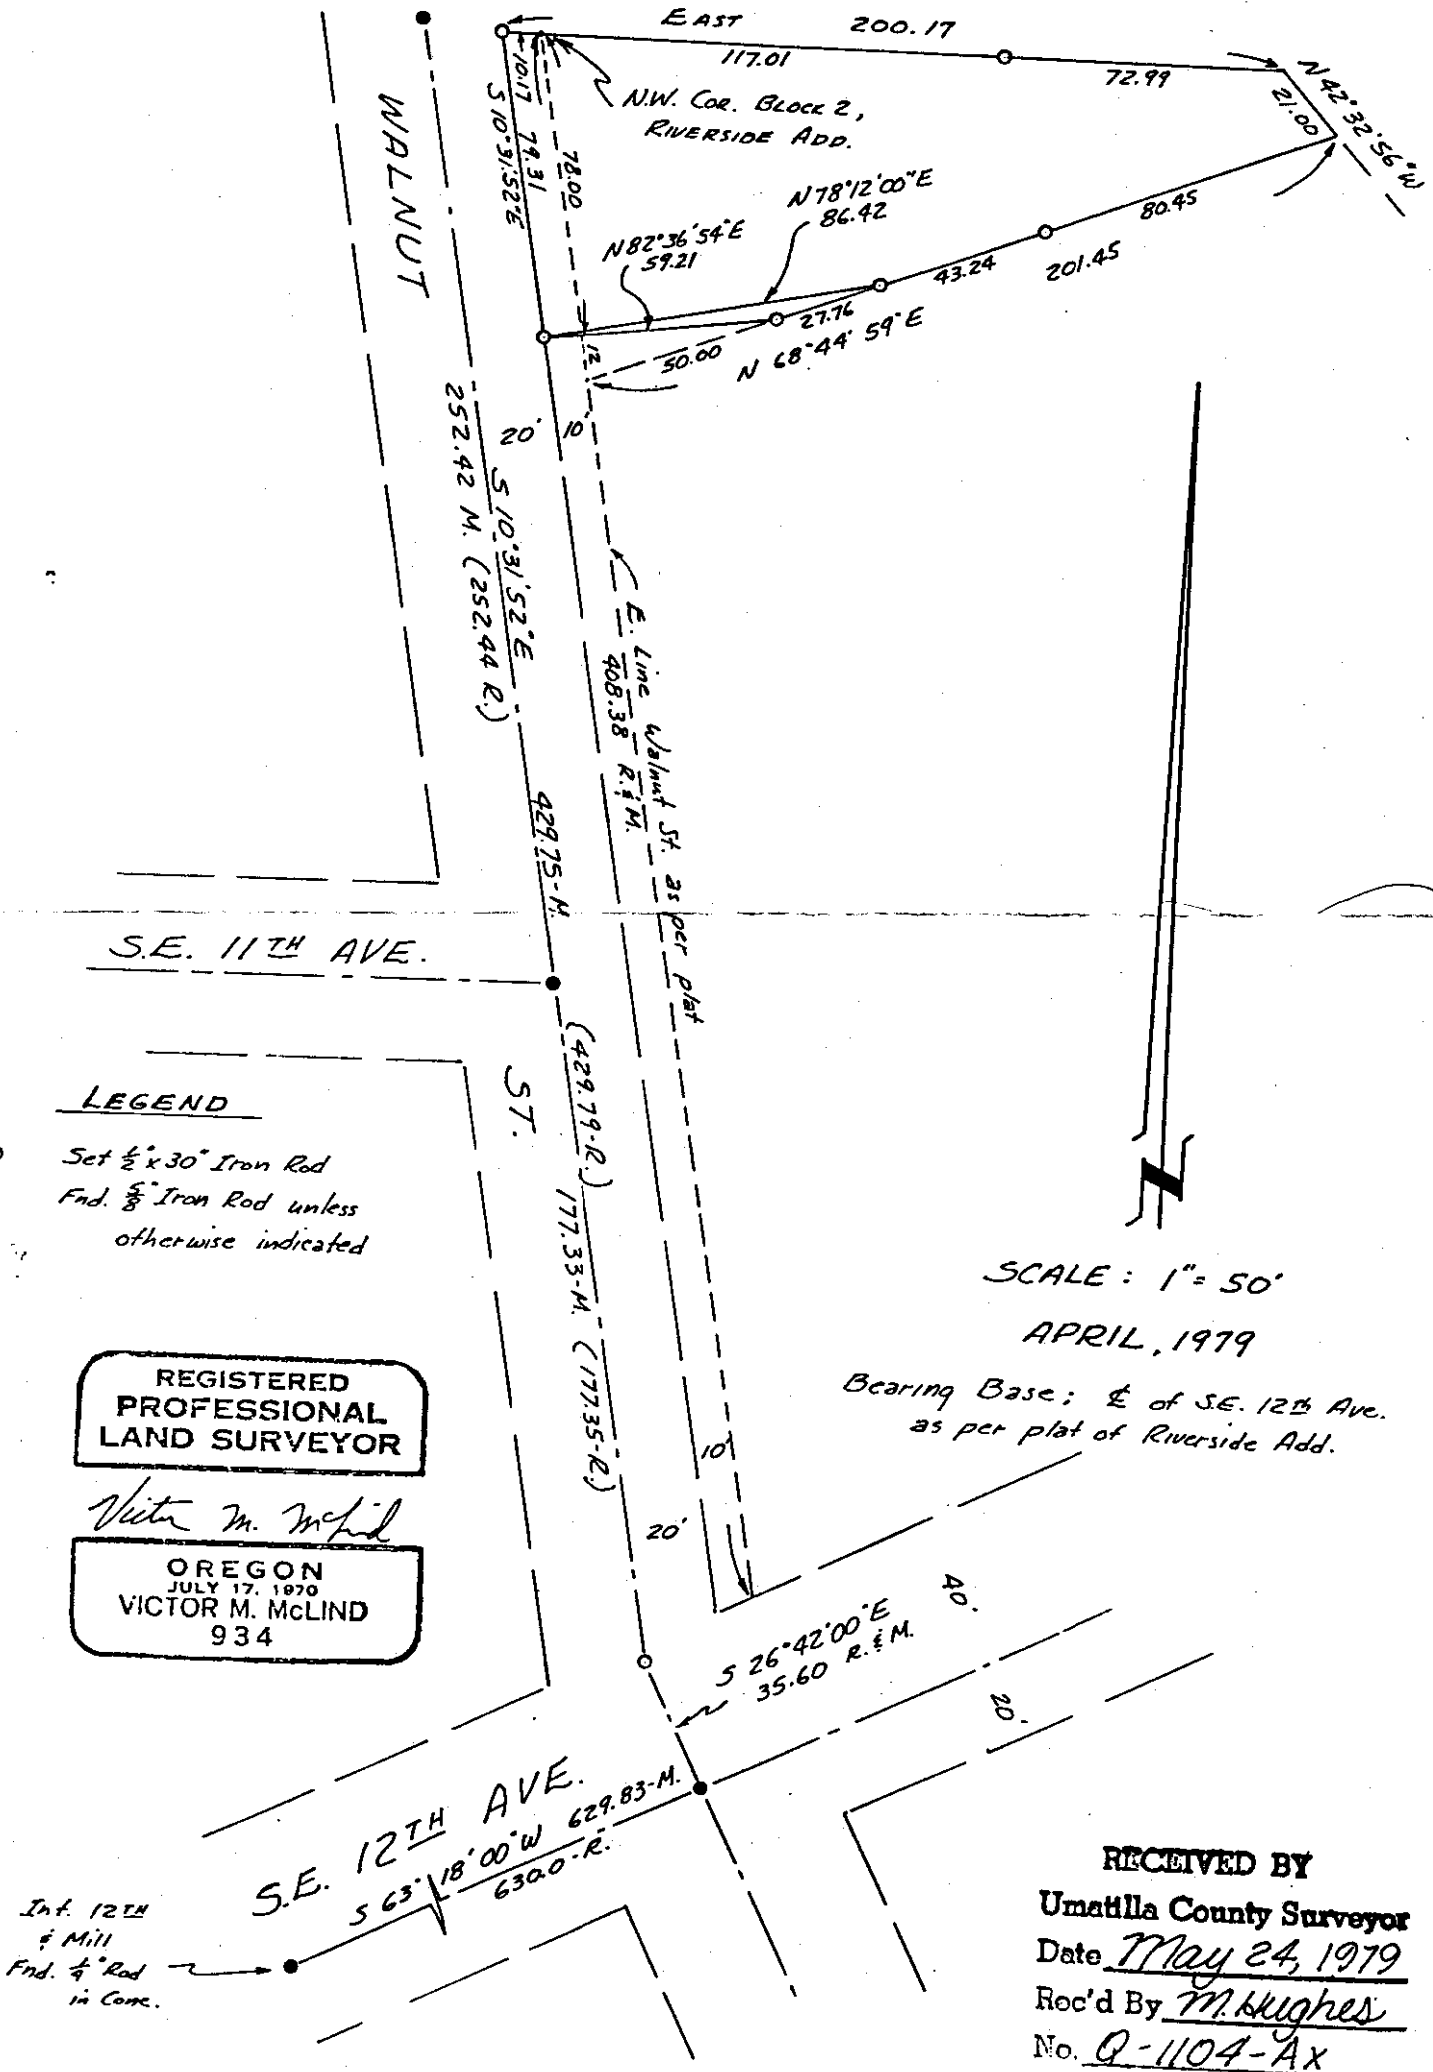 EAST 200.17
117.01
72.99
N 42°32'56" W
21.00
10.17
S 10°31'52" E
79.31
78.00
N.W. COR. BLOCK 2,
RIVERSIDE ADD.
N 78°12'00" E
86.42
N 82°36'54" E
59.21
80.45
43.24
201.45
27.76
50.00
N 68°44'59" E
12
WALNUT
20' 10'
S 10°31'52" E
252.42 M. (252.44 R.)
E. Line Walnut St. as per plat
408.38 R. & M.
429.75-M.
S.E. 11TH AVE.
(429.79-R.)
ST.
177.33-M. (177.35-R.)
LEGEND
Set 1/2" x 30" Iron Rod
Fnd. 5/8" Iron Rod unless
otherwise indicated
N
SCALE: 1" = 50'
APRIL, 1979
Bearing Base: ℄ of S.E. 12th Ave.
as per plat of Riverside Add.
REGISTERED
PROFESSIONAL
LAND SURVEYOR
Victor M. McLind
OREGON
JULY 17, 1970
VICTOR M. McLIND
934
10'
20'
S 26°42'00" E
35.60 R. & M.
40'
20'
S.E. 12TH AVE.
S 63°18'00" W 629.83-M.
630.0-R.
Int. 12TH
& Mill
Fnd. 1/4" Rod
in Conc.
RECEIVED BY
Umatilla County Surveyor
Date May 24, 1979
Rec'd By M. Hughes
No. Q-1104-AX